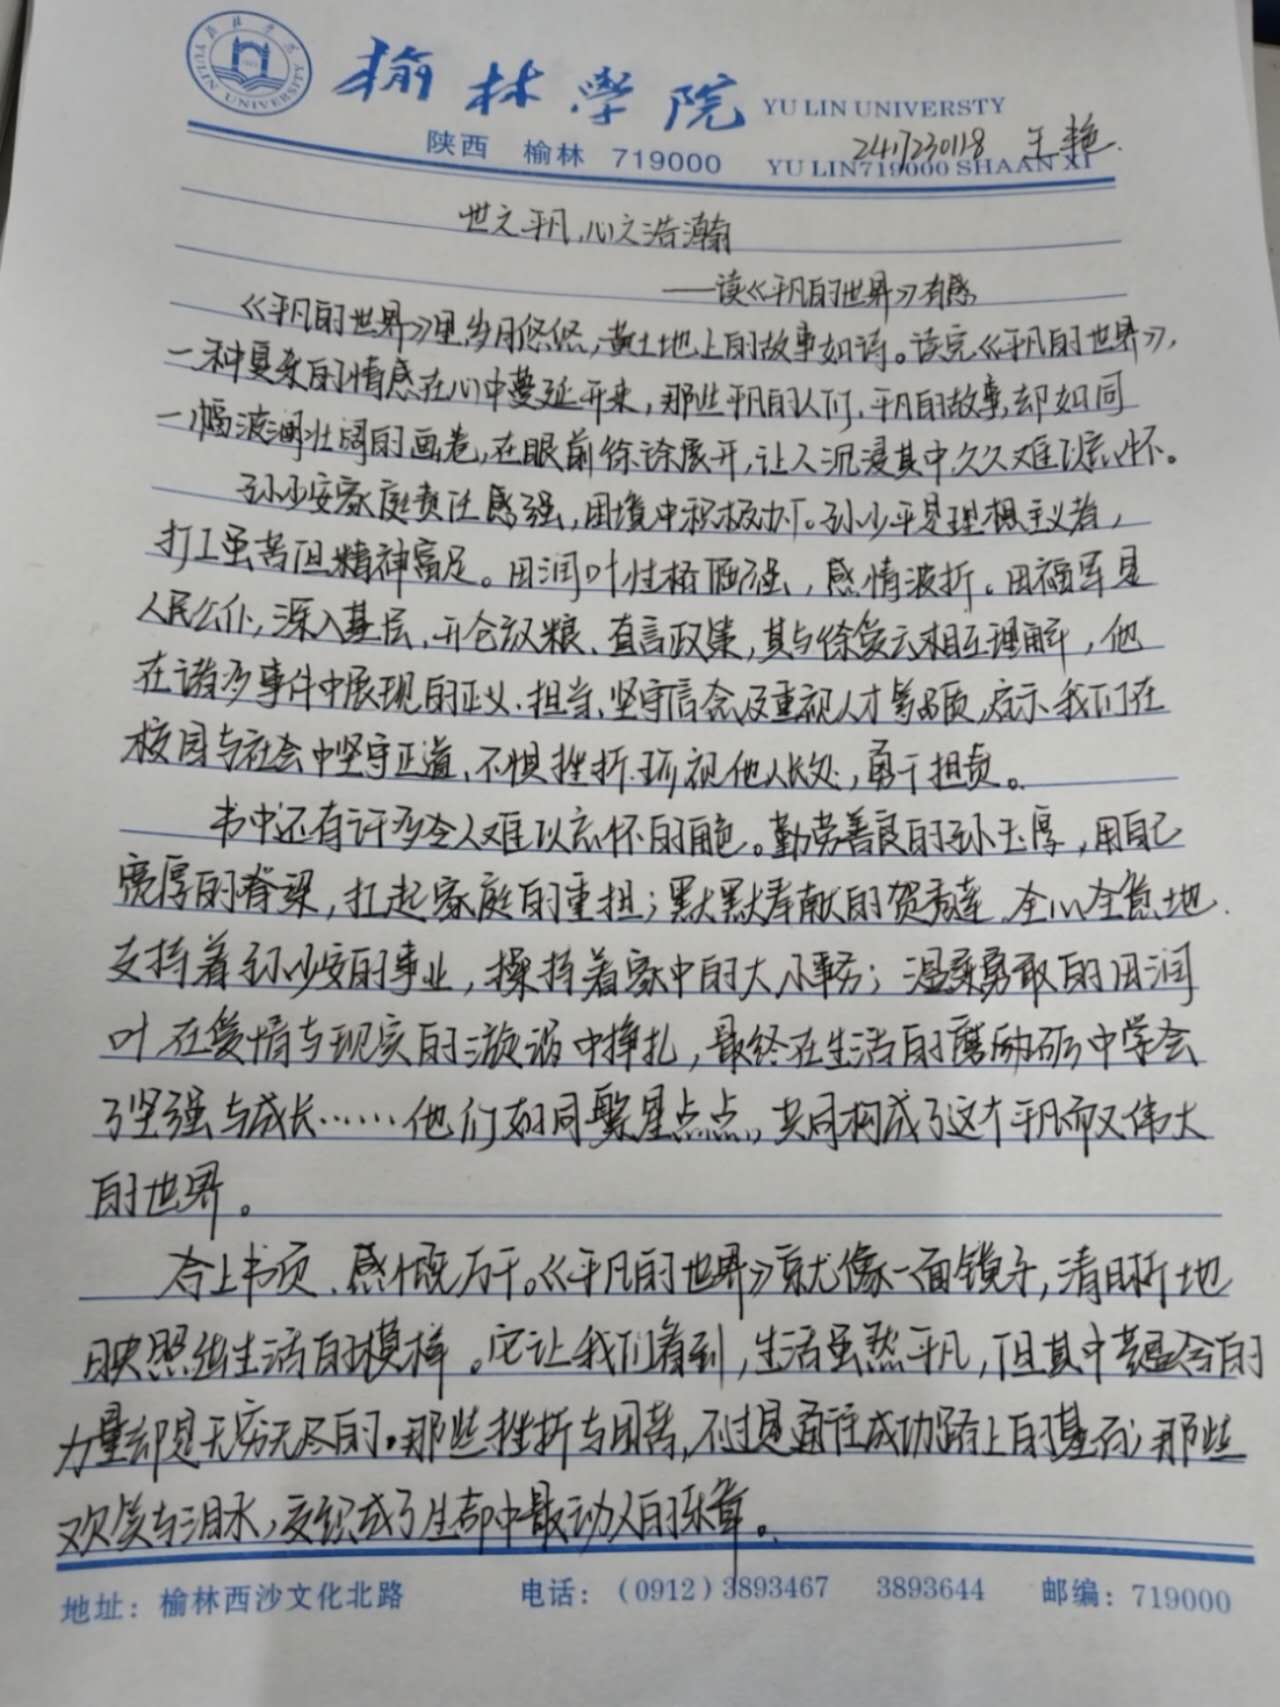 榆林学院 YU LIN UNIVERSTY
YULIN UNIVERSITY
2417230118 王艳
陕西 榆林 719000 YU LIN719000 SHAAN XI
世之平凡,心之浩瀚
——读《平凡的世界》有感
《平凡的世界》里岁月悠悠,黄土地上的故事如诗。读完《平凡的世界》,
一种复杂的情感在心中蔓延开来,那些平凡的人们、平凡的故事,却如同
一幅波澜壮阔的画卷,在眼前徐徐展开,让人沉浸其中,久久难以忘怀。
孙少安家庭责任感强,困境中积极办厂。孙少平是理想主义者,
打工虽苦但精神富足。田润叶性格倔强,感情波折。田福军是
人民公仆,深入基层、开仓放粮、直言政策,其与徐爱云相互理解,他
在诸多事件中展现的正义、担当、坚守信念及重视人才等品质,启示我们在
校园与社会中坚守正道、不惧挫折、珍视他人长处,勇于担责。
书中还有许多令人难以忘怀的角色。勤劳善良的孙玉厚,用自己
宽厚的脊梁,扛起家庭的重担;默默奉献的贺秀莲,全心全意地
支持着孙少安的事业,操持着家中的大小事务;温柔勇敢的田润
叶在爱情与现实的漩涡中挣扎,最终在生活的磨励砺中学会
了坚强与成长……他们如同繁星点点,共同构成了这个平凡而又伟大
的世界。
合上书页,感慨万千。《平凡的世界》就尤像一面镜子,清晰地
映照出生活的模样。它让我们看到,生活虽然平凡,但其中蕴含的
力量却是无穷无尽的。那些挫折与困苦,不过是通往成功路上的基石;那些
欢笑与泪水,交织成了生命中最动人的乐章。
地址:榆林西沙文化北路 电话:(0912)3893467 3893644 邮编:719000